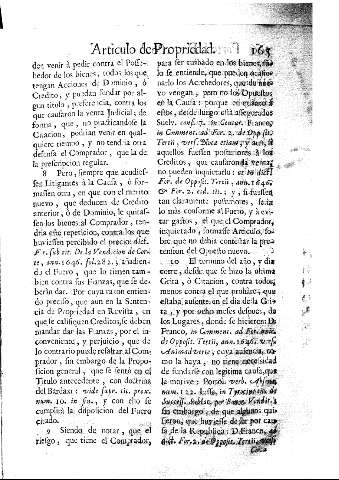 Articulo de Propriedad. 163
den venir à pedir contra el Possee-
hedor de los bienes, todos los que
tengan Acciones de Dominio, ò
Credito, y puedan fundar por al-
gun titulo, preferencia, contra los
que causaron la venta Judicial; de
forma, que, no practicandose la
Citacion, podrian venir en qual-
quiere tiempo, y no tendria otra
defensa el Comprador, que la de
la prescripcion regular.
8 Pero, siempre que acudies-
sen Litigantes à la Causa, ò for-
massen otra, en que con el merito
nuevo, que deducen de Credito
anterior, ò de Dominio, le quitas-
sen los bienes al Comprador, ten-
dria este repeticion, contra los que
huviessen percibido el precio: dict.
For. sub tit. De la Vendicion de Cor-
te, ann. 1646. fol. 282. añadien-
do el Fuero, que lo tienen tam-
bien contra sus Fianzas, que se de-
berán dar. Por cuya razon enten-
do preciso, que aun en la Senten-
cia de Propriedad en Revista, en
que le califiquen Creditos, se deben
mandar dar las Fianzas, por el in-
conveniente, y perjuicio, que de
lo contrario puede resultar al Com-
prador, sin embargo de la Propo-
sicion general, que se sentò en el
Titulo antecedente, con doctrina
del Bardaxi: vide supr. tit. prox.
num. 10. in fin., y con esto se
cumplirà la disposicion del Fuero
citado.
9 Siendo de notar, que el
riesgo, que tiene el Comprador,
para ser turbado en los bienes,
lo se entiende, que puedan ocasio-
narlo los Acrehedores, que de nue-
vo vengan, pero no los Opuestos
en la Causa: porque en quanto à
estos, desde luego està assegurado:
Suelv. conf. 7. 19. Centur. Franco,
in Comment. ad For. 2. de Opposit.
Tertii, vers. Nota etiam; y aun, si
aquellos fuessen posteriores à los
Creditos, que causaron la venta,
no pueden inquietarlo: ut in dict.
For. de Opposit. Tertii, ann. 1646.
& For. 2. eod. tit.; y, si fuessen
tan claramente posteriores, seria
lo mas conforme al Fuero, y à evi-
tar gastos, el que el Comprador,
inquietado, formasse Articulo, so-
bre que no debia contestar la pre-
tension del Opuesto nuevo.
10 El termino del año, y dia
corre, desde que se hizo la ultima
Grita, ò Citacion, contra todos,
menos contra el que probare, que
estaba ausente, en el dia de la Gri-
ta, y por ocho meses despues, de
los Lugares, donde se hicieren: D.
Franco, in Comment. ad For. unic.
de Opposit. Tertii, ann. 1646. vers.
Animadverte, cuya ausencia, co-
mo la haya, no tiene necesidad
de fundarse con legitima causa, que
la motive: Portol. verb. Absens,
num. 122. Sesse, in
sin embargo, de que algunos quisie-
ron, que huviesse de ser por cau-
sa de la Republica: D. Franco, ad
dict. For. 2. de Opposit. Tertii,